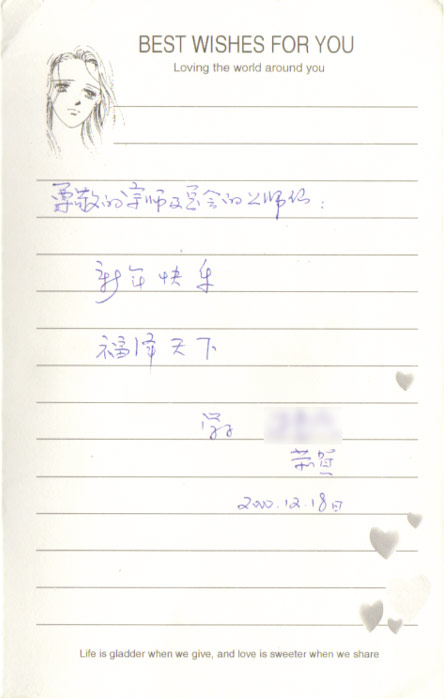 BEST WISHES FOR YOU
Loving the world around you
尊敬的宗师及总会的上师们:
新年快乐
福泽天下
弟子
恭贺
2000.12.18日
Life is gladder when we give, and love is sweeter when we share